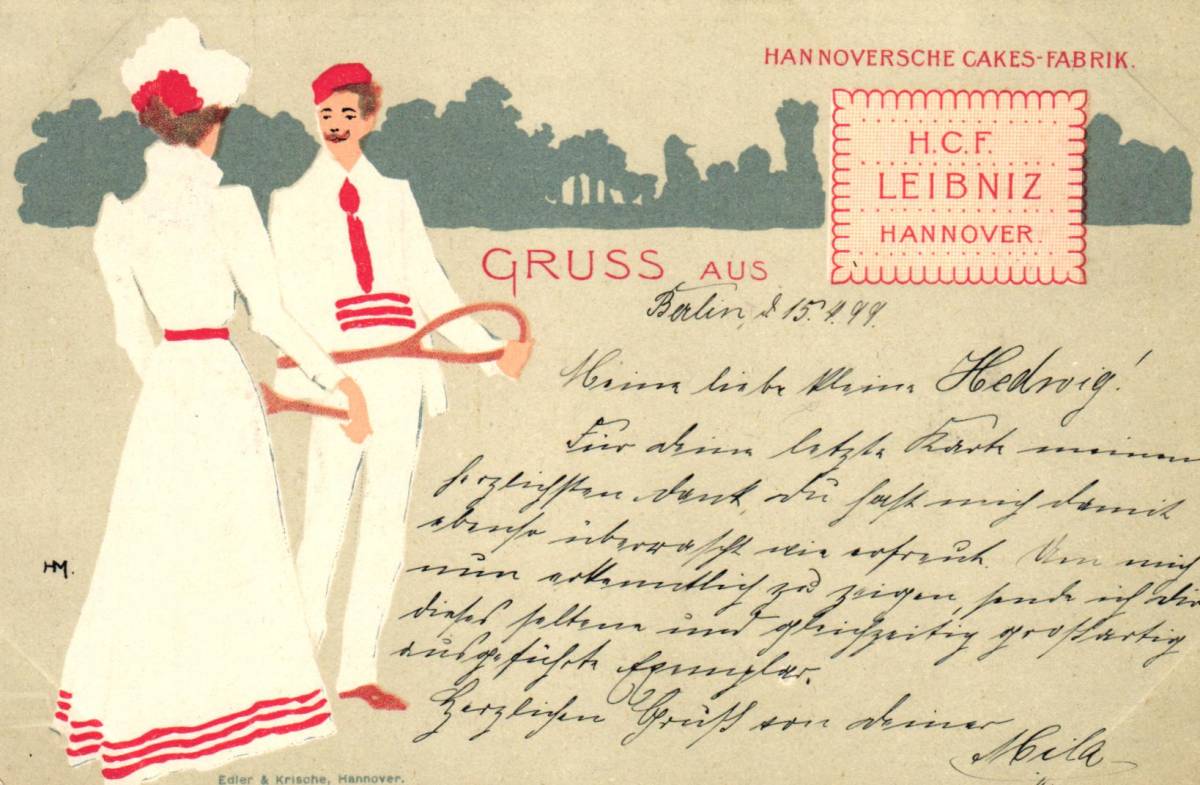 HANNOVERSCHE CAKES-FABRIK.
H.C.F.
LEIBNIZ
HANNOVER.
GRUSS AUS
Berlin d 15.4.99.
Meine liebe kleine Hedwig!
Für deine letzte Karte meinen
herzlichsten Dank du hast mich damit
ebenso überrascht wie erfreut. Um mich
nun erkenntlich zu zeigen, sende ich dir
dieses seltene und gleichzeitig großartig
ausgeführte Exemplar.
Herzlichen Gruß von deiner
Mila
HM.
Edler & Krische, Hannover.